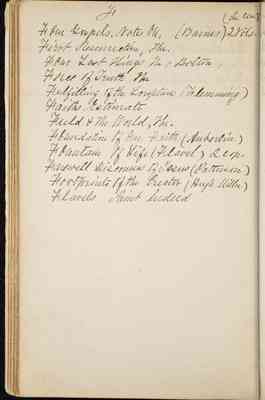 F
Four Gospels, Notes on, (Barnes) 2 Vols.
First Resurrection, The.
Four Last Things, The, Bolton,
Force of Truth The
Fulfilling of the Scripture (Flemming)
Faiths Estimate
Field & the World, The.
Foundation of Our Faith, (Auberlin)
Fountain of Life (Flavel) 2 cop.
Farewell Discourses of Jesus (Patterson)
Footprints of the Creator (Hugh Miller)
Flavels Saint Indeed